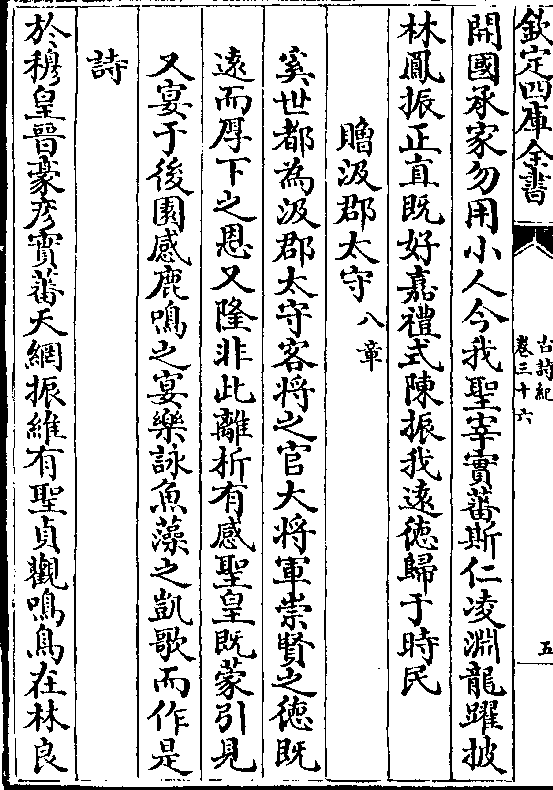 欽定四庫全書
古詩紀
卷三十六
五
開國承家勿用小人今我聖宰實蕃斯仁凌淵龍躍披
林鳳振正直既好嘉禮式陳振我遠徳歸于時民
贈汲郡太守八章
奚世都為汲郡太守客將之官大將軍崇賢之徳既
遠而厚下之恩又隆非此離析有感聖皇既蒙引見
又宴于後園感鹿鳴之宴樂詠魚藻之凱歌而作是
詩
於穆皇晉豪彦實蕃天網振維有聖貞觀鳴鳥在林良